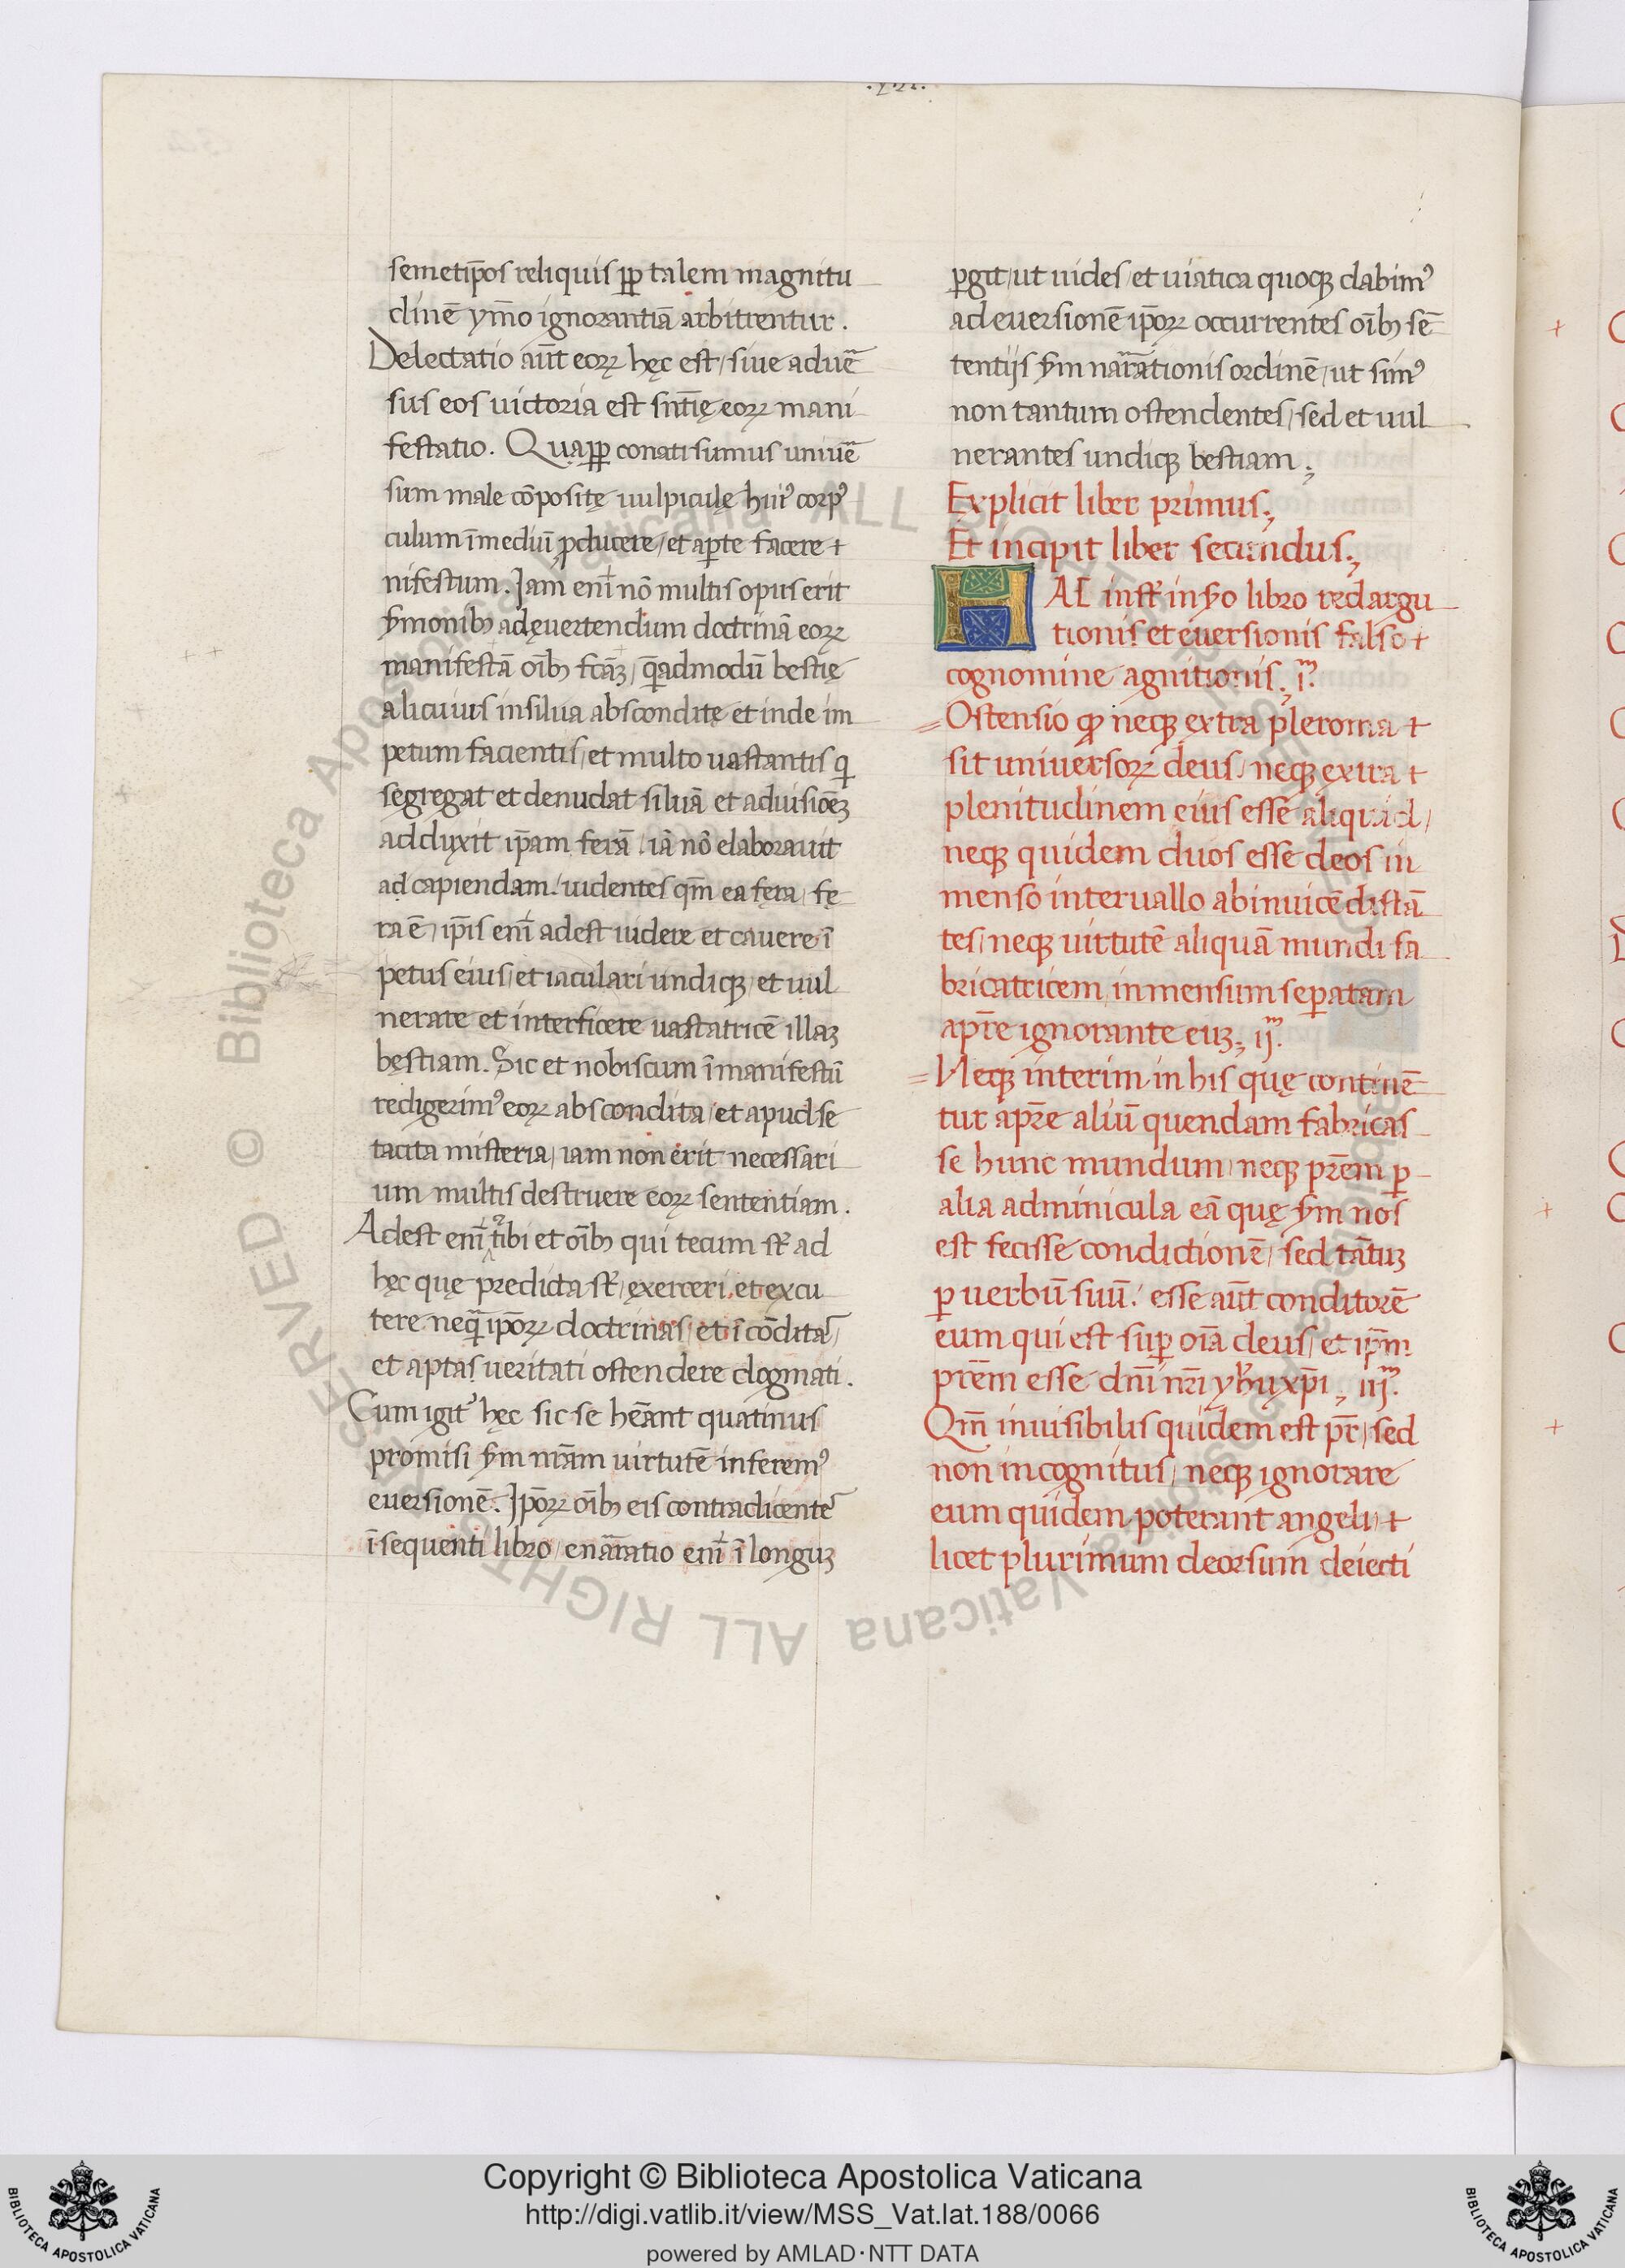 semetip̄os reliquis ꝓp talem magnitu
dinē ym̄o ignorantiā arbitrentur.
Delectatio aūt eoꝝ hęc est/ siue aduē
sus eos uictoria est sn̄tię eoꝝ mani
festatio. Quaꝓp conati sumus uniuē
sum male cōpositę uulpiculę hui᾽ corp᾽
culum ī mediū ꝓducere/ et aꝑte facere +
nifestum. Iam enī nō multis opus erit
ẏmonibꝫ adęuertendum doctrinā eoꝝ
manifestā oībꝫ fcāꝫ/ q̄admodū bestię
alicuius in silua absconditę et inde im
petum facientis/ et multo uastantis qi
segregat et denudat siluā et aduisiōeꝫ
adduxit ip̄am ferā/ iā nō elaborauit
ad capiendam. uidentes qm̄ ea fęra/ fę
ra ē/ ip̄is enī adest uidere et cauere ī
petus eius/ et iaculari undiqꝫ/ et uul
nerare et interficere uastatricē illaꝫ
bęstiam. Sic et nobiscum ī manifestū
redigerim᾽ eoꝝ abscondita/ et apud se
tacita misteria/ iam non erit necessari
um multis destruere eoꝝ sententiam.
Adest enī tibi et oībꝫ qui tecum st̄ ad
hęc quę predicta st̄/ ęxerceri et excu
tere neq̄ ip̄oꝝ doctrinas/ et ī cōdita᾽/
et aptas ueritati ostendere dogmati.
Cum igit᾽ hęc sic se hēant quatinus
promisi ẏm nr̄am uirtutē inferem᾽
euersionē. Ip̄oꝝ oībꝫ eis contradicente᾽
ī sequenti libro/ enarratio enī ī longuꝫ
ꝑgit/ ut uides/ et uiatica quoqꝫ dabim᾽
ad euersionē ip̄oꝝ occurrentes oībꝫ sē
tentijs ẏm narrationis ordinē/ ut sim᾽
non tantum ostendentes/ sed et uul
nerantes undiqꝫ bestiam;
Explicit liber primus;
Et incipit liber secundus;
HAĒ inst̄ in ẏo libro redargu
tionis et euersionis falso +
cognomine agnitionis; i.ᵐ
Ostensio ꝙ neqꝫ extra pleroma +
sit uniuersoꝝ deus/ neqꝫ extra +
plenitudinem eius esse aliquid/
neqꝫ quidem duos esse deos in
menso interuallo abinuicē distā
tes/ neqꝫ uirtutē aliquā mundi fa
bricatricem inmensum seꝑatam
apr̄e ignorante euꝫ; ij.ᵐ
Neqꝫ interim in his quę continē
tur apr̄e aliū quendam fabricas
se hunc mundum/ neqꝫ pr̄em ꝑ
alia adminicula eā quę ẏm nos
est fecisse condictionē/ sed tātuꝫ
ꝑ uerbū suū. esse aūt conditorē
eum qui est suꝑ oīa deus/ et ip̄m
pr̄em esse dn̄i nr̄i yħu xp̄i; iij.ᵐ
Qm̄ inuisibilis quidem est pr̄/ sed
non incognitus/ neqꝫ ignorare
eum quidem poterant angeli/ +
licet plurimum deorsum deiecti
Copyright © Biblioteca Apostolica Vaticana
http://digi.vatlib.it/view/MSS_Vat.lat.188/0066
powered by AMLAD·NTT DATA
BIBLIOTECA APOSTOLICA VATICANA
BIBLIOTECA APOSTOLICA VATICANA